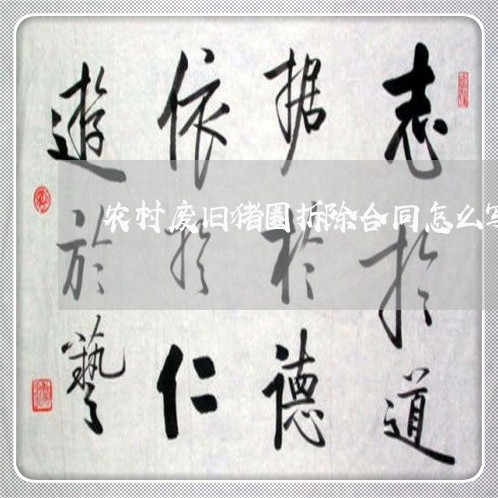 志於道
据於德
依於仁
遊於藝
农村废旧猪圈拆除合同怎么写